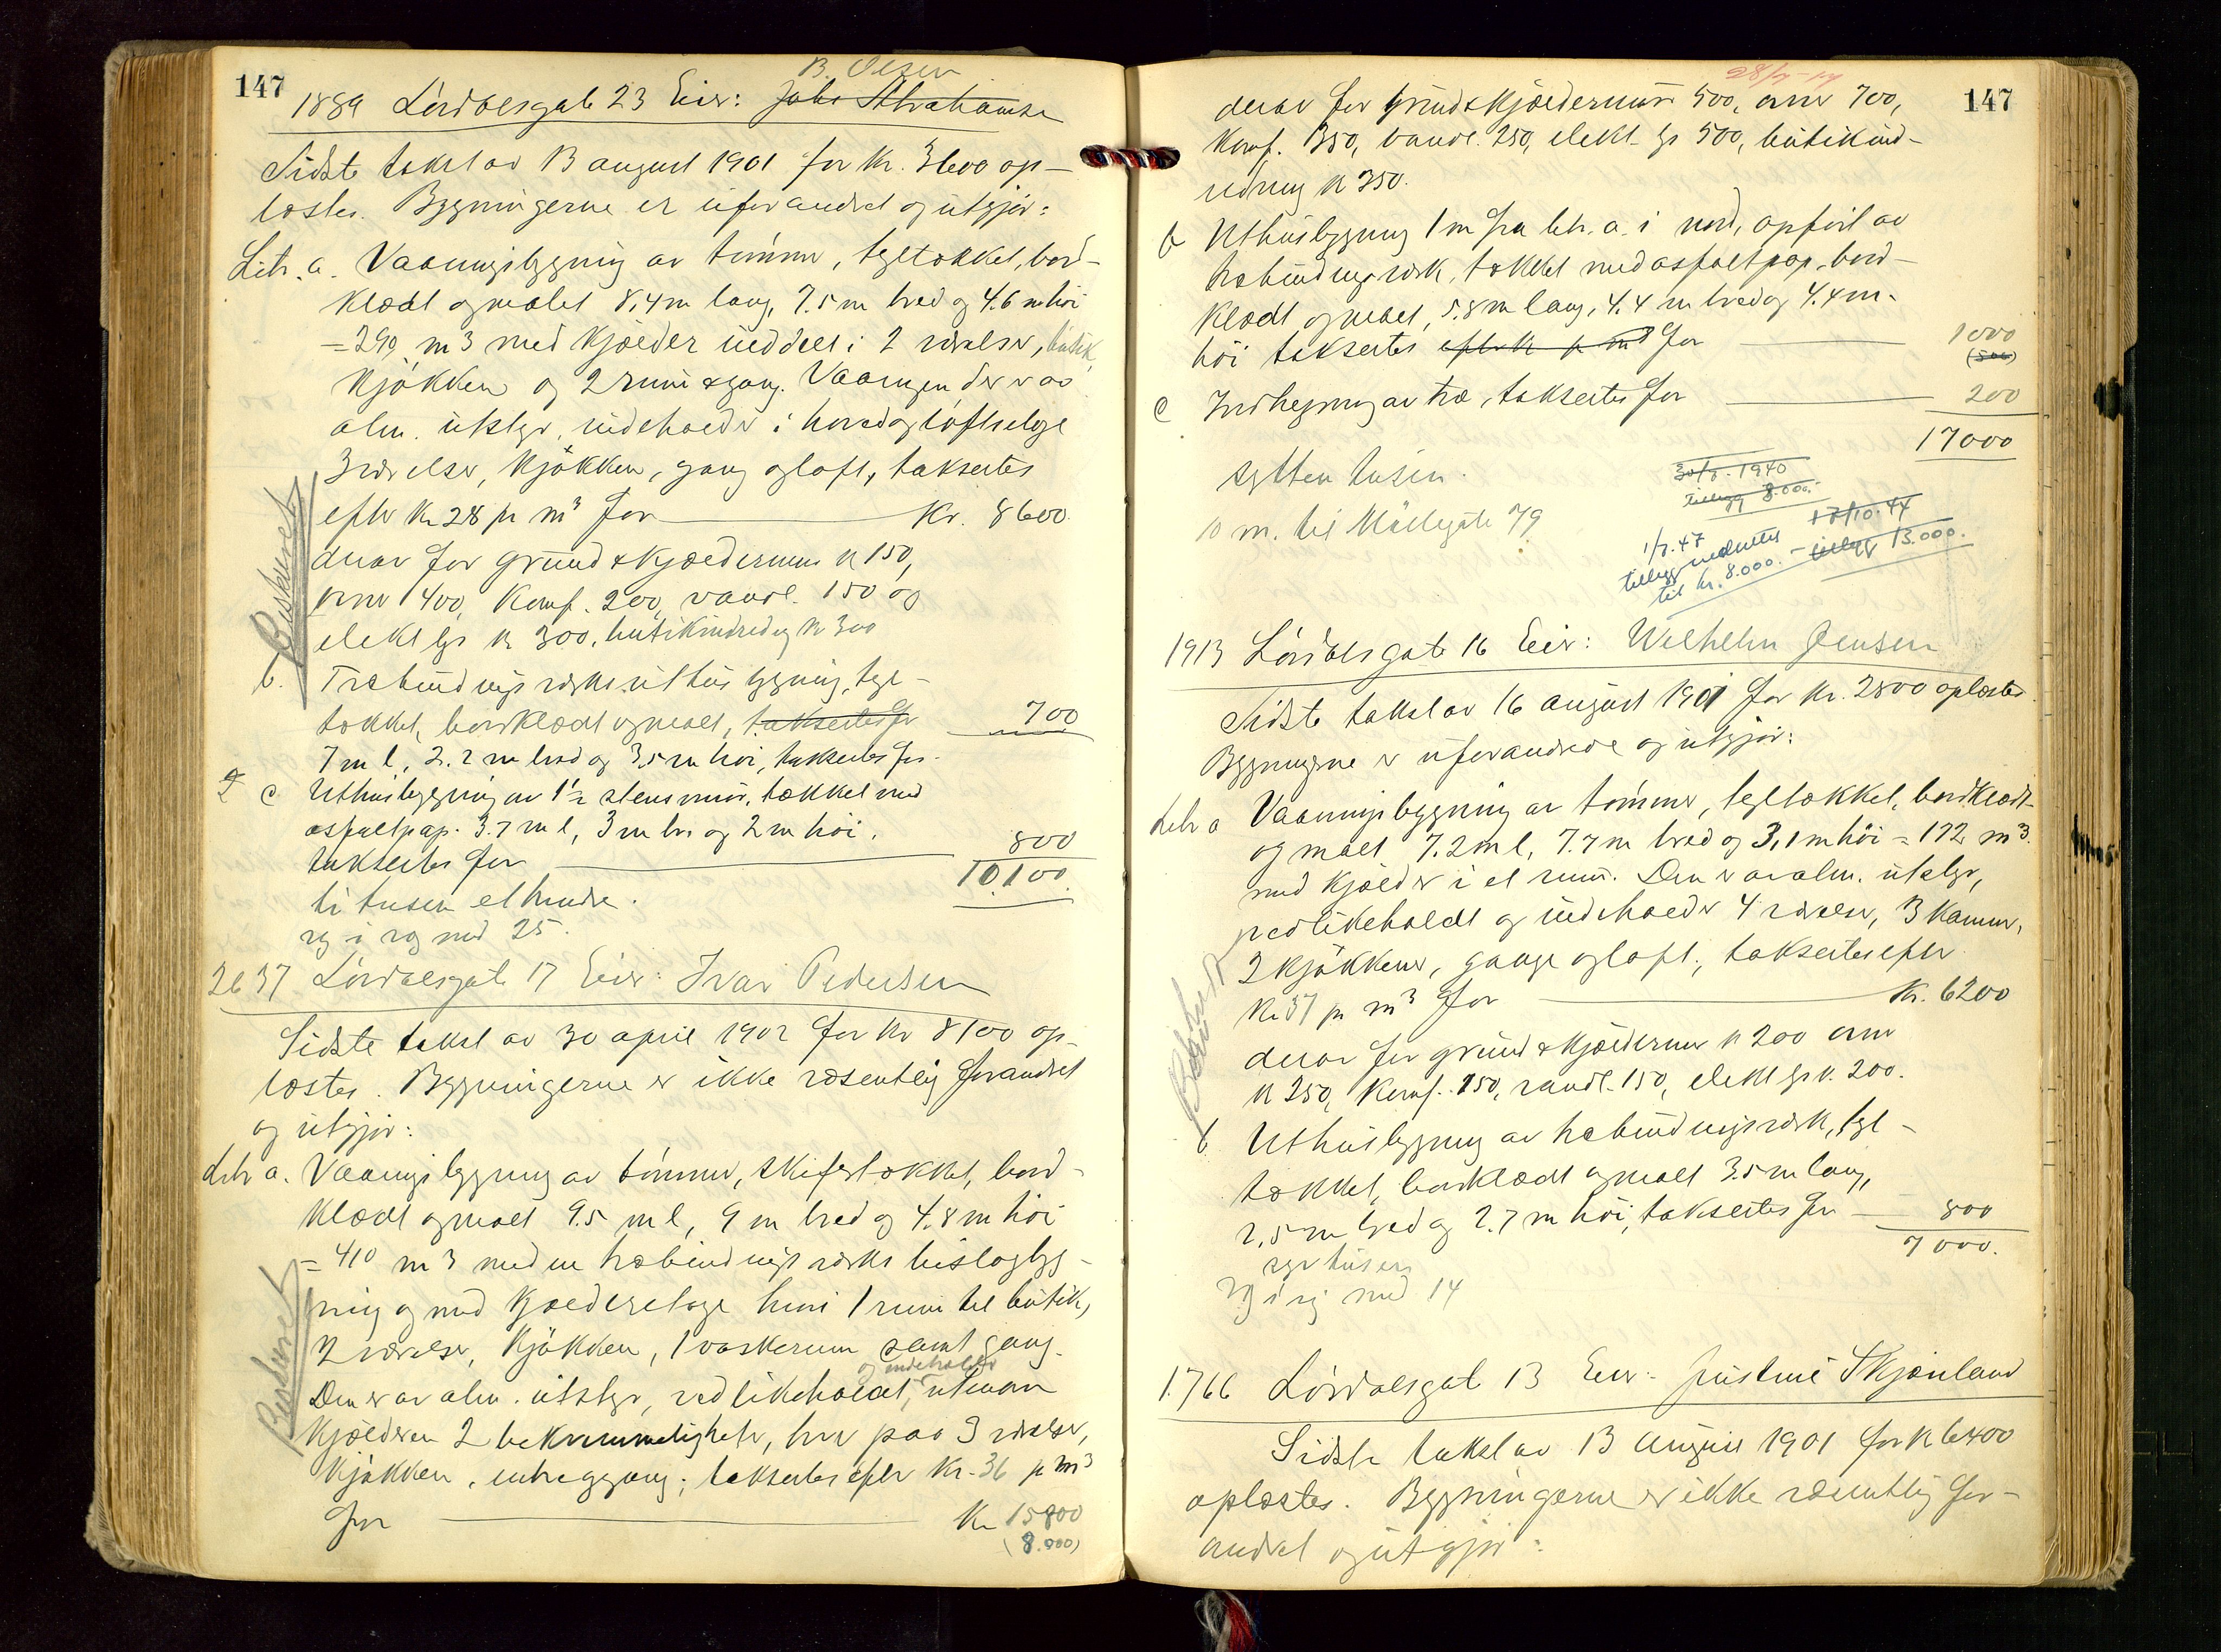 147
B. Olsen
1889 Lövdalsgate 23 Eier: Jobs Abrahamsen
Sidste takst av 13 august 1901 for kr. 3600 op-
læstes. Bygningerne er uforandret og utgjør:
Litr. a. Vaaningsbygning av tømmer, tegltækket, bord-
klædt og malet 8,4 m lang, 7.5 m bred og 4.6 m høi
= 290 m3 med kjælder inddelt i 2 værelser, butik,
kjøkken og 2 rum & gang. Vaaningen der er av
alm. utstyr, indeholder i hoved og loftsetage
3 værelser, kjøkken, gang og loft, takseres
efter kr 28 pr m³ for kr. 8600
Beskrevet
derav for grund & kjældermur kr 150,
ovner 400, komf. 200, vandl. 150 og
elekt lys kr 300, butikindredn kr 300
b. Træbindingsverks uthusbygning, tegl-
tækket, bordklædt og malt, takseres for 700
7 m l, 2.2 m bred og 3,5 m høi, takseres for
c Uthusbygning av 1½ stens mur, tækket med
asfaltpap. 3.7 m l, 3 m br og 2 m høi,
takseres for 800
10.100
ti tusen et hundre.
ryg i ryg med 25.
2637 Lövdalsgate 17 Eier: Ivar Pedersen
Sidste takst av 30 april 1902 for kr 8100 op-
læstes. Bygningerne er ikke væsentlig forandret
og utgjør:
Litr a. Vaaningsbygning av tømmer, skifertækket, bord-
klædt og malt 9.5 m l, 9 m bred og 4.8 m høi
= 410 m3 med en træbindingsverks bislagbyg-
ning og med kjælderetage hvori 1 rum til butik,
2 værelser, kjøkken, 1 vaskerum samt gang.
og indeholder
Den er av alm. utstyr, vedlikeholdt, utenom
kjælderen 2 bekvemmeligheter, hver paa 3 værelser,
kjøkken, entregang; takseres efter kr. 36 pr m³
for kr 15800
(8.000)
Beskrevet
147
28/7-17
derav for grund & kjældermur 500, ovner 700,
komf. 350, vandl. 250, elekt. lys 500, butikind-
redning kr 350.
b Uthusbygning 1 m fra litr. a. i nord, opført av
træbindingsverk, tækket med asfaltpap, bord-
klædt og malt, 5.8 m lang, 4.4 m bred og 4.4 m
høi takseres efter kr pr m³ for 1000
(500)
c Indhegning av træ, takseres for 200
17000
sytten tusen.
10 m. til Møllegate 79
30/7. 1940
Tillegg 8.000.
17/10. 44
tillegg 13.000.
1/7. 47
tillegg nedsettes
til kr. 8.000.
1913 Lövdalsgate 16 Eier: Wilhelm Jensen
Sidste takst av 16 august 1901 for kr. 2800 oplæstes.
Bygningerne er uforandrede og utgjør:
Litr a Vaaningsbygning av tømmer, tegltækket, bordklædt
og malt 7.2 m l, 7.7 m bred og 3,1 m høi = 172 m3.
med kjælder i et rum. Den er av alm. utstyr,
vedlikeholdt og indeholder 4 værelser, 3 kammer,
2 kjøkkener, gange og loft; takseres efter
kr 37 pr m3 for kr. 6200
Beskrevet
derav for grund & kjældermur kr 200 ovner
kr 250, komf. 150, vandl. 150, elekt lys kr. 200.
b Uthusbygning av træbindingsverk, tegl-
tækket, bordklædt og malt 3.5 m lang,
2,5 m bred og 2.7 m høi, takseres for 800
7000.
syv tusen
ryg i ryg med 14
1766 Lövdalsgate 13 Eier: Justine Skjønland
Sidste takst av 13 august 1901 for kr 6400
oplæstes. Bygningerne er ikke væsentlig for-
andret og utgjør: